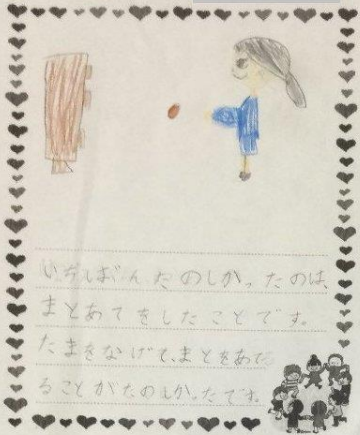 いちばんたのしかったのは、
まとあてをしたことです。
たまをなげて、まとをあて
ることがたのしかったです。